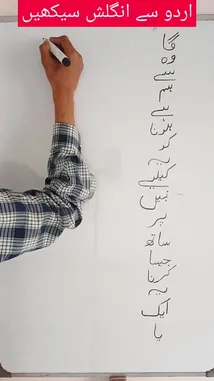 اردو سے انگلش سیکھیں
گا وہ ہے ہونا کو نہیں پر ساتھ جیسا کرنا ایک یا